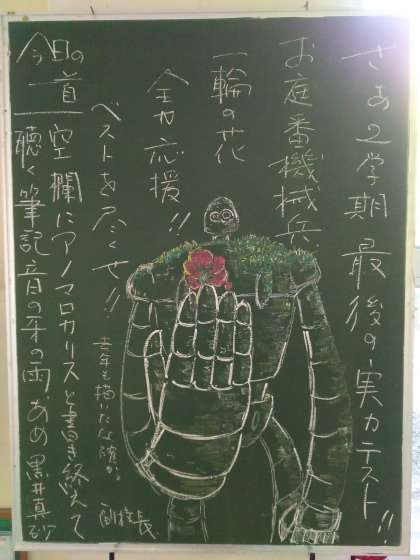 さあ2学期最後の実力テスト!!
お庭番機械兵
一輪の花
全力応援!!
ベストを尽くせ!!
去年も描いたな確か。
副校長
今日の一首
空欄にアノマロカリスと書き終えて
聴く筆記音の牙の雨、あめ 黒井真砂